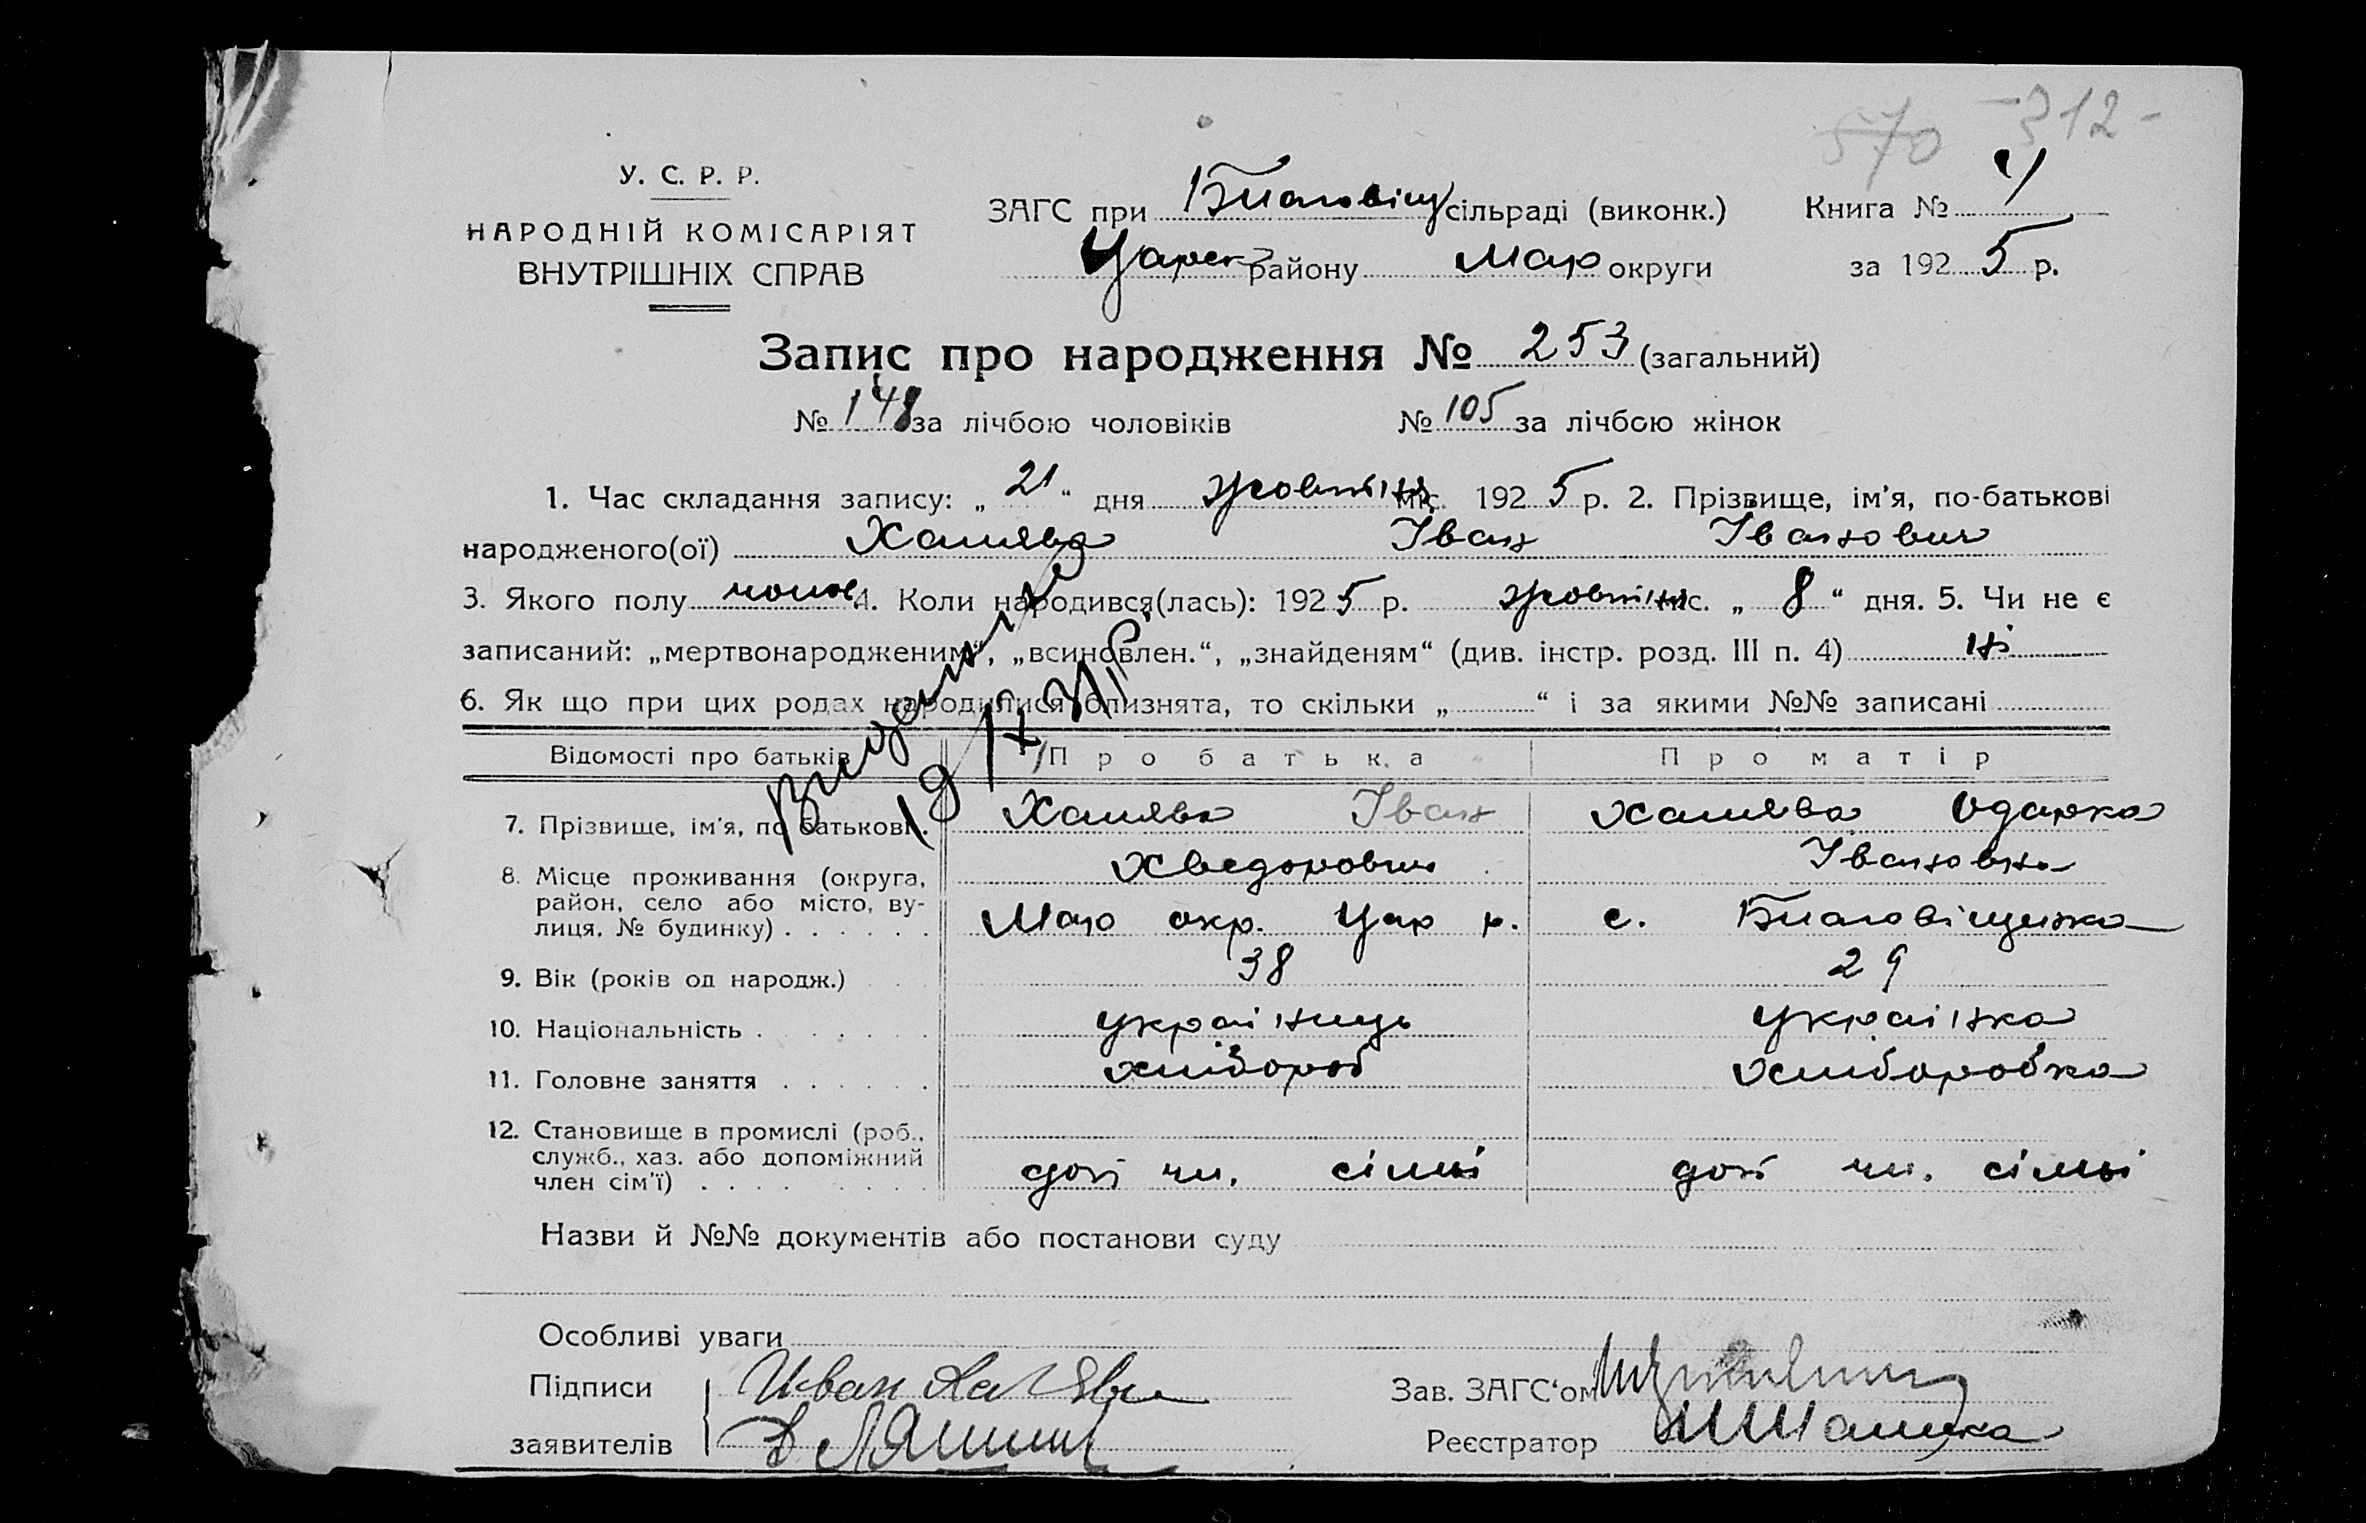 570 312-
У. С. Р. Р.
НАРОДНІЙ КОМІСАРІЯТ
ВНУТРІШНІХ СПРАВ
ЗАГС при Благовіщ сільраді (виконк.) Книга №
Царск району Мар округи за 1925 р.
Запис про народження № 253 (загальний)
№ 148 за лічбою чоловіків № 105 за лічбою жінок
1. Час складання запису: „21“ дня жовтня міс. 1925 р. 2. Прізвище, ім'я, по-батькові
народженого(ої) Халява Іван Іванович
3. Якого полу чолов 4. Коли народився(лась): 1925 р. жовтня міс. „8“ дня. 5. Чи не є
записаний: „мертвонародженим“, „всиновлен.“, „знайденям“ (див. інстр. розд. III п. 4) ні
6. Як що при цих родах народилися близнята, то скільки „ “ і за якими №№ записані
Відомості про батьків Про батька Про матір
7. Прізвище, ім'я, по батькові. Халява Іван Халява Одарка
Хведорович Івановна
8. Місце проживання (округа,
район, село або місто, ву-
лиця, № будинку) . . . . . . Мар окр. Цар р. с. Благовіщенка
9. Вік (років од народж.) 38 29
10. Національність . . . . . українець українка
11. Головне заняття . . . . . хлібороб хлиборобка
12. Становище в промислі (роб.,
служб., хаз. або допоміжний
член сім'ї) . . . . . . . . доп чл. сімьі доп чл. сімьі
Назви й №№ документів або постанови суду
Особливі уваги
Підписи Иван Халява Зав. ЗАГС'ом
заявителів Реєстратор